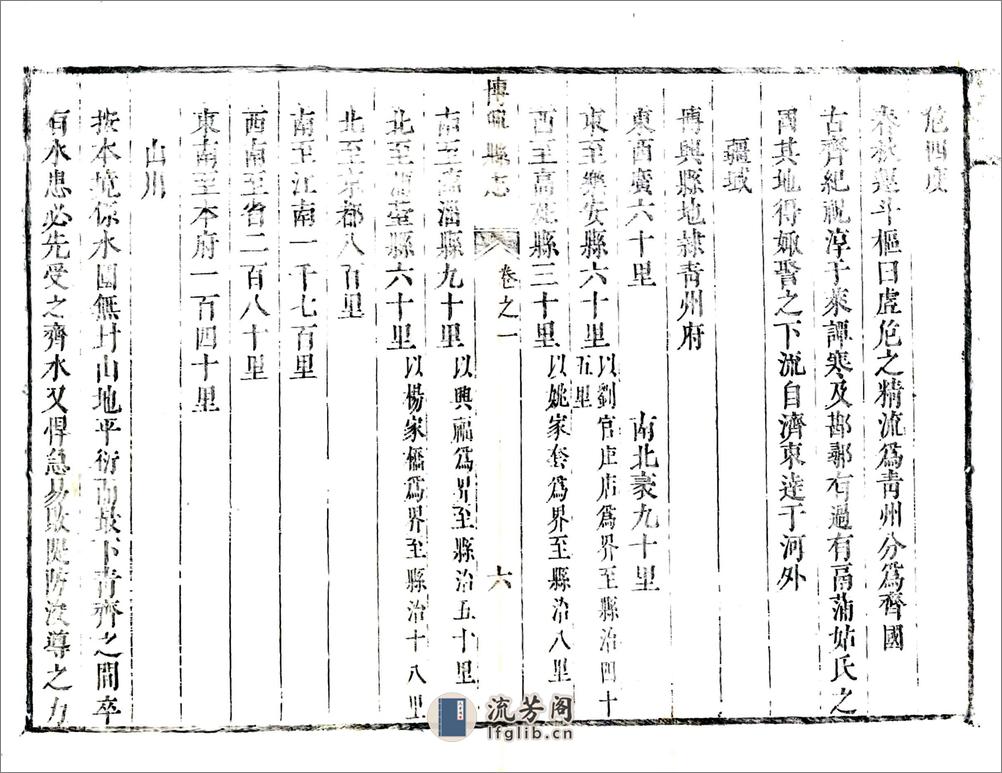 危四度
春秋運斗樞曰虛危之精流為青州分為齊國
古齊紀祝淳于萊譚寒及鄑鄩有過有鬲蒲姑氏之
國其地得娵訾之下流自濟東達于河外
疆域
博興縣地隸青州府
東西廣六十里 南北袤九十里
東至樂安縣六十里以劉官庄店為界至縣治四十五里
西至高苑縣三十里以姚家套為界至縣治八里
博興縣志 卷之一 六
南至臨淄縣九十里以興福為界至縣治五十里
北至蒲臺縣六十里以楊家橋為界至縣治十八里
北至京都八百里
南至江南一千七百里
西南至省二百八十里
東南至本府一百四十里
山川
按本境係水國無封山地平衍而最下青齊之間卒
有水患必先受之齊水又悍急易敗隄防浚導之力
流芳阁
lfglib.cn